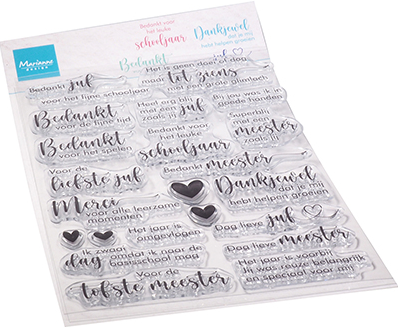 Marianne
DESIGN
Bedankt voor
het leuke
schooljaar
Dankjewel
dat je mij
hebt helpen groeien
Bedankt
Bedankt juf
voor het fijne schooljaar
Het is geen doei of dag
maar tot ziens
met een grote glimlach
Bedankt
voor de fijne tijd
Heel erg blij
met een
zoals juf
Bij jou was ik in
goede handen
Bedankt
voor het spelen
Bedankt voor
het leuke
schooljaar
Superblij
met een
meester
zoals jij
Voor de
liefste juf
Bedankt meester
Merci
voor alle leerzame
momenten
Dankjewel
dat je mij
hebt helpen groeien
Het jaar is
omgevlogen
Dag lieve juf
Ik zwaai
dag
omdat ik naar de
basisschool mag
Dag lieve meester
Voor de
tofste meester
Het jaar is voorbij
Ik was reuze belangrijk
en speciaal voor mij